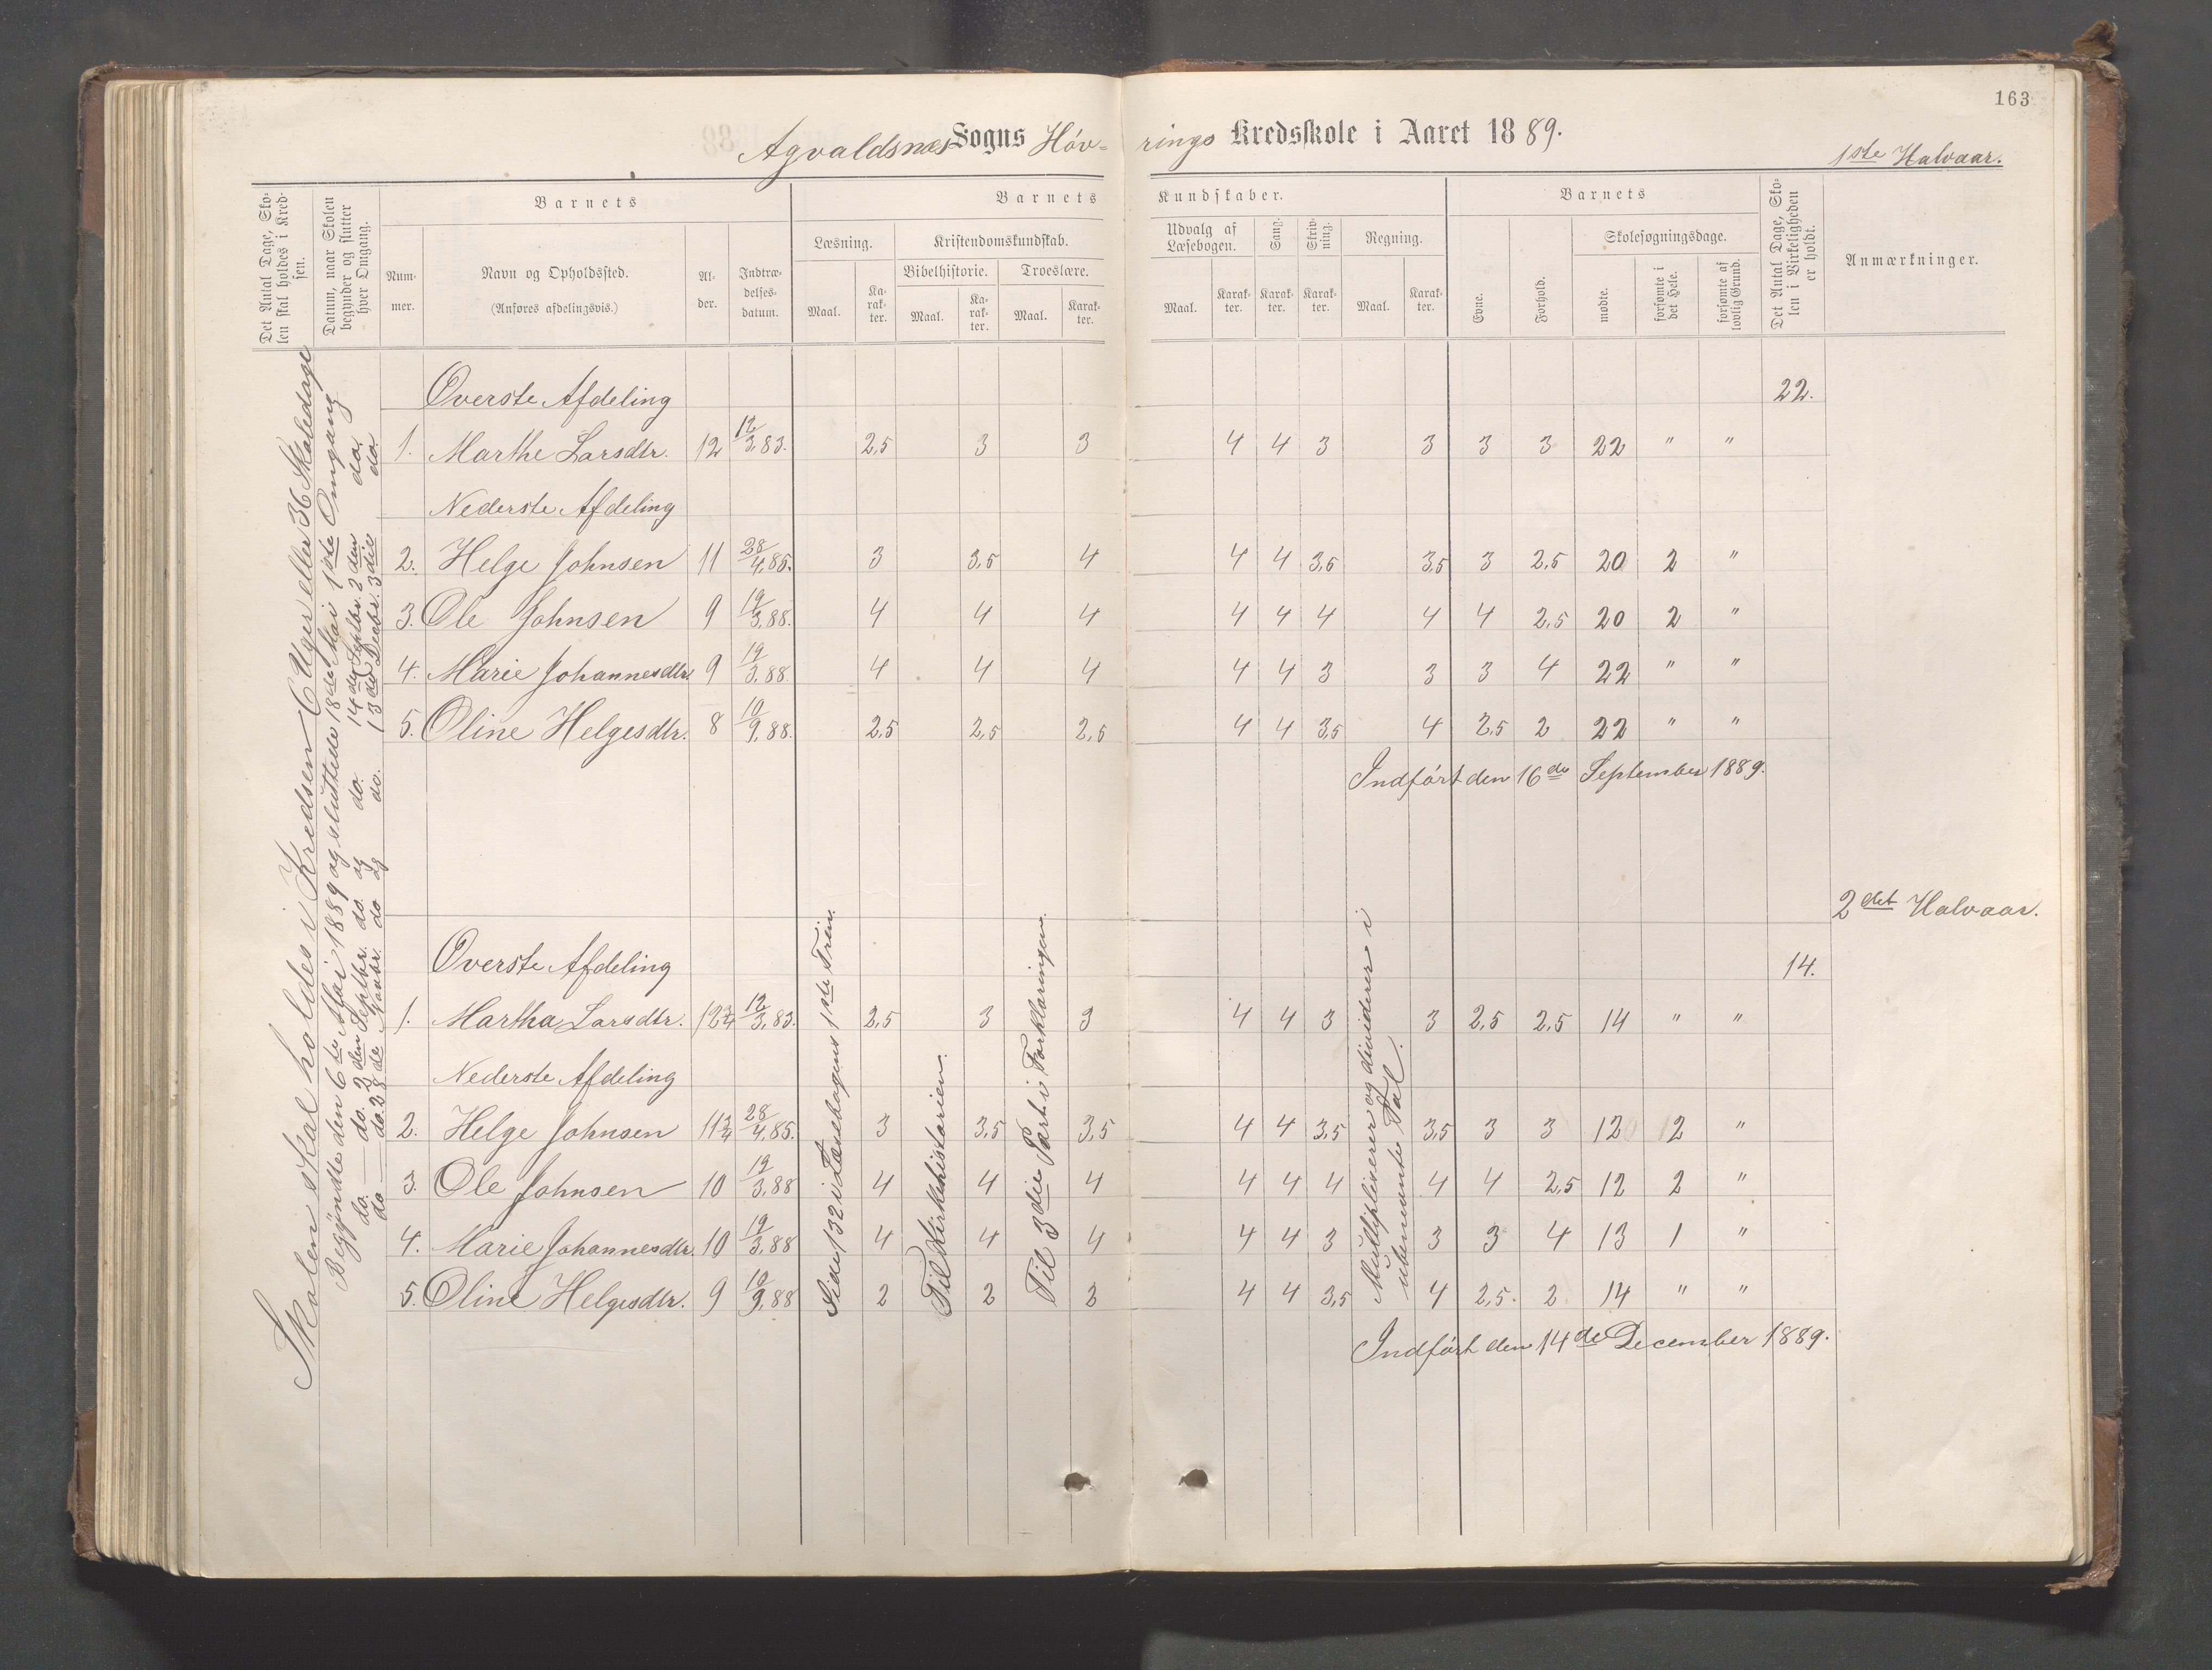 163
Agvaldsnæs Sogns Høvrings Kredsskole i Aaret 1889.
1ste Halvaar.
Det Antal Dage, Skolen skal holdes i Kredsen.
Datum, naar Skolen begynder og slutter hver Omgang.
Barnets
Barnets Kundskaber.
Barnets
Det Antal Dage, Skolen i Virkeligheden er holdt.
Anmærkninger.
Nummer.
Navn og Opholdssted.
(Anføres afdelingsvis.)
Alder.
Indtrædelsesdatum.
Læsning.
Kristendomskundskab.
Udvalg af Læsebogen.
Sang.
Skrivning.
Regning.
Evne.
Forhold.
Skolesøgningsdage.
Bibelhistorie.
Troeslære.
Maal. Karakter. Maal. Karakter. Maal. Karakter. Maal. Karakter. Karakter. Karakter. Maal. Karakter.
mødte.
forsømte i det Hele.
forsømte af lovlig Grund.
Skolen skal holdes i Kredsen 6 Uger eller 36 Skoledage
Begyndte den 6te Mai 1889 og sluttede 18de Mai 1ste Omgang
do. — do. 2den Septbr. do. og do. 14de Septbr. 2den do.
do — do. 28de Novbr. do og do. 13de Decbr. 3die do.
Øverste Afdeling 22.
1. Marthe Larsdtr. 12 12/3,83. 2,5 3 3 4 4 3 3 3 3 22 " "
Nederste Afdeling
2. Helge Johnsen 11 28/4,85. 3 3,5 4 4 4 3,5 3,5 3 2,5 20 2 "
3. Ole Johnsen 9 19/3,88. 4 4 4 4 4 4 4 4 2,5 20 2 "
4. Marie Johannesdtr. 9 19/3,88. 4 4 4 4 4 3 3 3 4 22 " "
5. Oline Helgesdtr. 8 10/9,88. 2,5 2,5 2,5 4 4 3,5 4 2,5 2 22 " "
Indført den 16de September 1889.
2det Halvaar.
Øverste Afdeling 14.
1. Martha Larsdtr. 12 3/4 12/3,83. 2,5 3 3 4 4 3 3 2,5 2,5 14 " "
Nederste Afdeling
2. Helge Johnsen 11 3/4 28/4,85. 3 3,5 3,5 4 4 3,5 3,5 3 3 12 2 "
3. Ole Johnsen 10 19/3,88 4 4 4 4 4 4 4 4 2,5 12 2 "
4. Marie Johannesdtr. 10 19/3,88 4 4 4 4 4 3 3 3 4 13 1 "
5. Oline Helgesdtr. 9 10/9,88 2 2 2 4 4 3,5 4 2,5. 2 14 " "
Side 132 i Læsebogens 1ste Trin.
Til Kirkehistorien.
Til 3die Part i Forklaringen.
Multipliserer og dividerer i
ubenævnte Tal.
Indført den 14de December 1889.